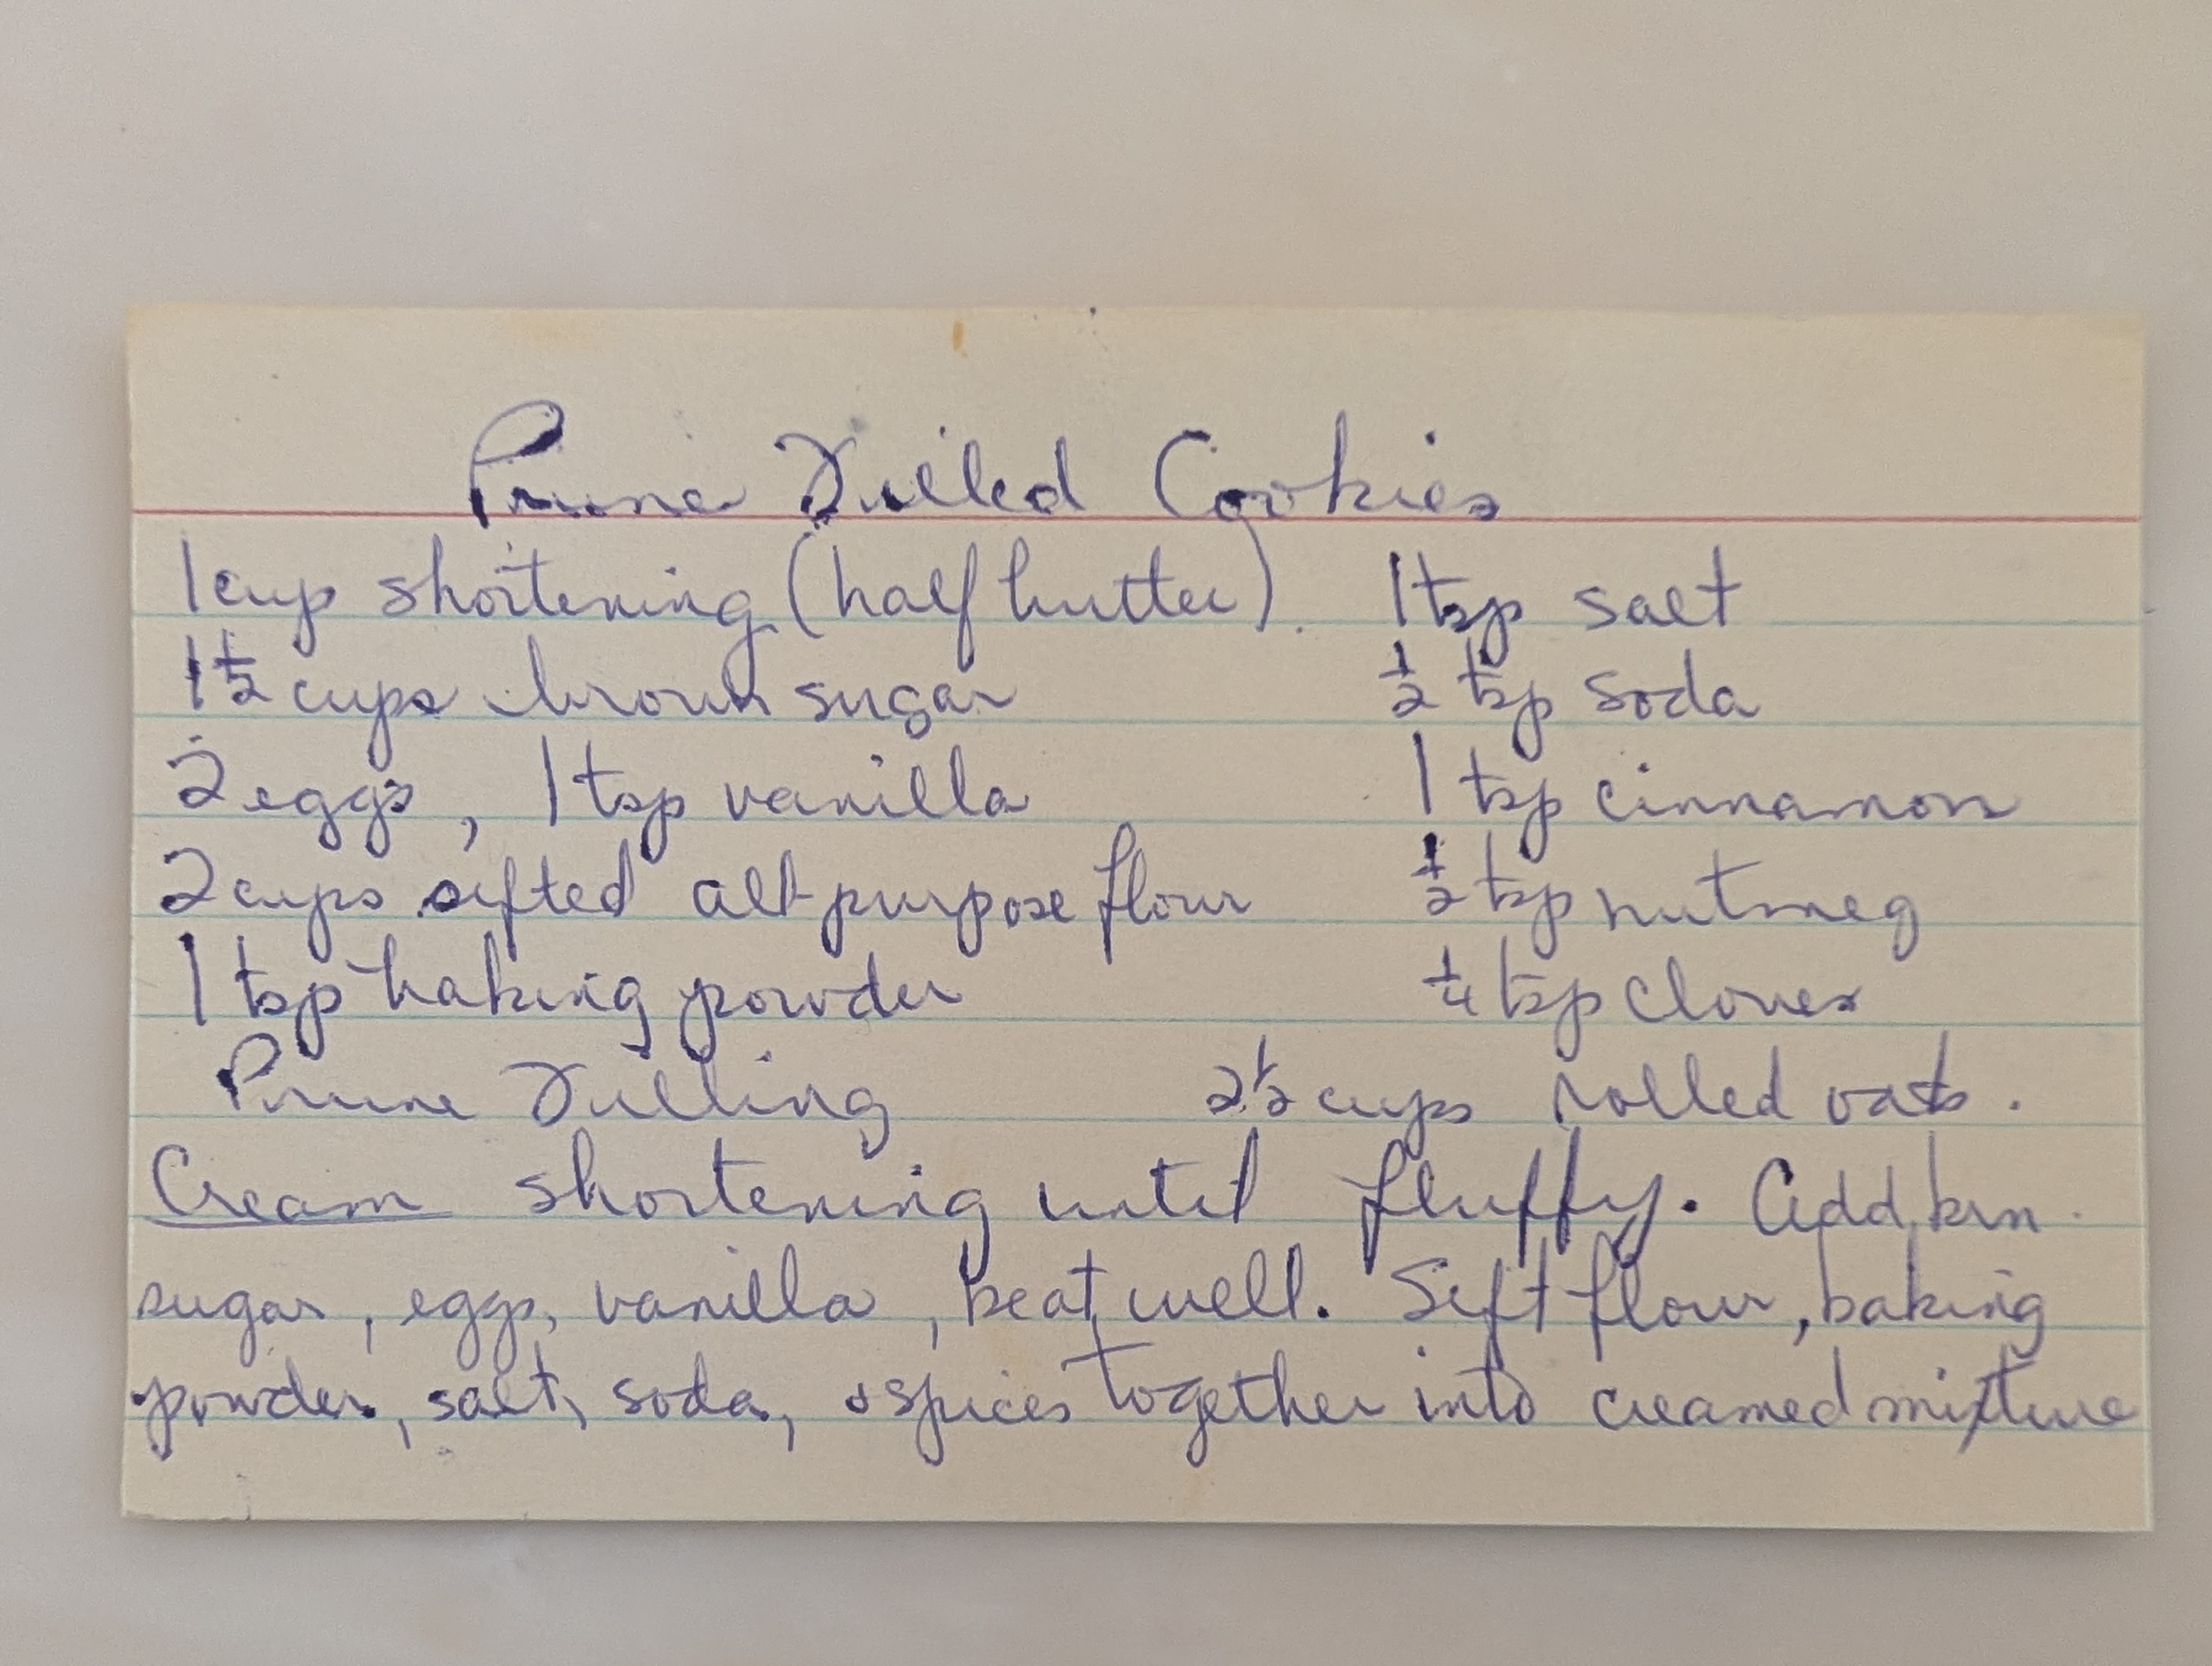 Prune Filled Cookies
1 cup shortening (half butter). 1 tsp salt
1 1/2 cups brown sugar 1/2 tsp soda
2 eggs, 1 tsp vanilla 1 tsp cinnamon
2 cups sifted all-purpose flour 1/2 tsp nutmeg
1 tsp baking powder 1/4 tsp cloves
Prune Filling 2 1/2 cups rolled oats.
Cream shortening until fluffy. Add brn.
sugar, eggs, vanilla, beat well. Sift flour, baking
powder, salt, soda, & spices together into creamed mixture